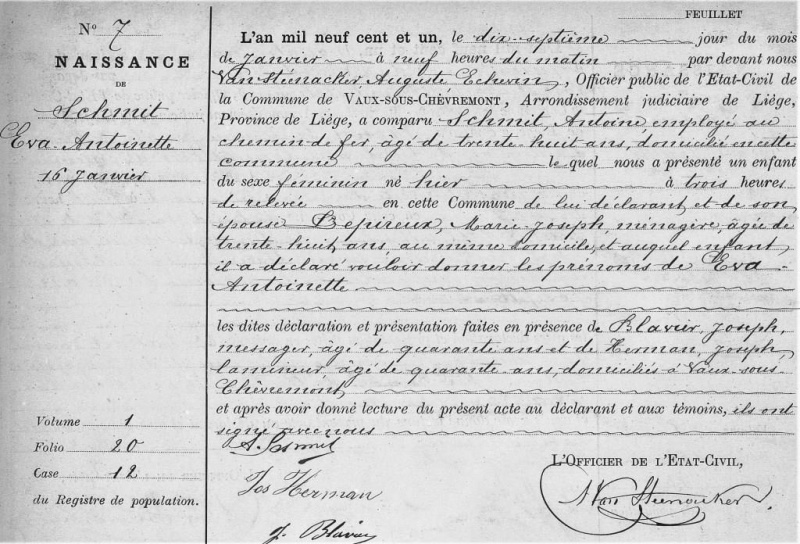 FEUILLET
N° 7
NAISSANCE
DE
Schmit
Eva Antoinette
16 Janvier
Volume 1
Folio 20
Case 12
du Registre de population.
L'an mil neuf cent et un, le dix-septième jour du mois
de Janvier à neuf heures du matin par devant nous
Van Stéenacker, Auguste Echevin, Officier public de l'Etat-Civil de
la Commune de VAUX-SOUS-CHÈVREMONT, Arrondissement judiciaire de Liége,
Province de Liége, a comparu Schmit, Antoine employé au
chemin de fer, âgé de trente huit ans, domicilié en cette
commune lequel nous a présenté un enfant
du sexe féminin né hier à trois heures
de relevée en cette Commune de lui déclarant et de son
épouse Lepireux, Marie-Joseph, ménagère, âgée de
trente-huit ans, au même domicile, et auquel enfant
il a déclaré vouloir donner les prénoms de Eva
Antoinette
les dites déclaration et présentation faites en présence de Blavier, Joseph,
messager, âgé de quarante ans et de Herman, Joseph,
lamineur, âgé de quarante ans, domiciliés à Vaux-sous-
Chèvremont,
et après avoir donné lecture du présent acte au déclarant et aux témoins, ils ont
signé avec nous
A. Schmit
Jos Herman
J. Blavier
L'OFFICIER DE L'ETAT-CIVIL,
A Van Steenacker